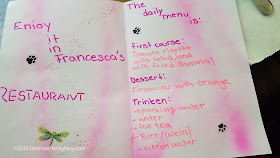 Enjoy
it
in
Francesca's
RESTAURANT
The
daily menu
is:
First course:
Tomato risotto
with salad (and
with fried Banana)
Dessert:
Tiramisu with orange
Trinken:
-sparkling water
- water
- Ice tea
- Bier/(Wein)
- citron water